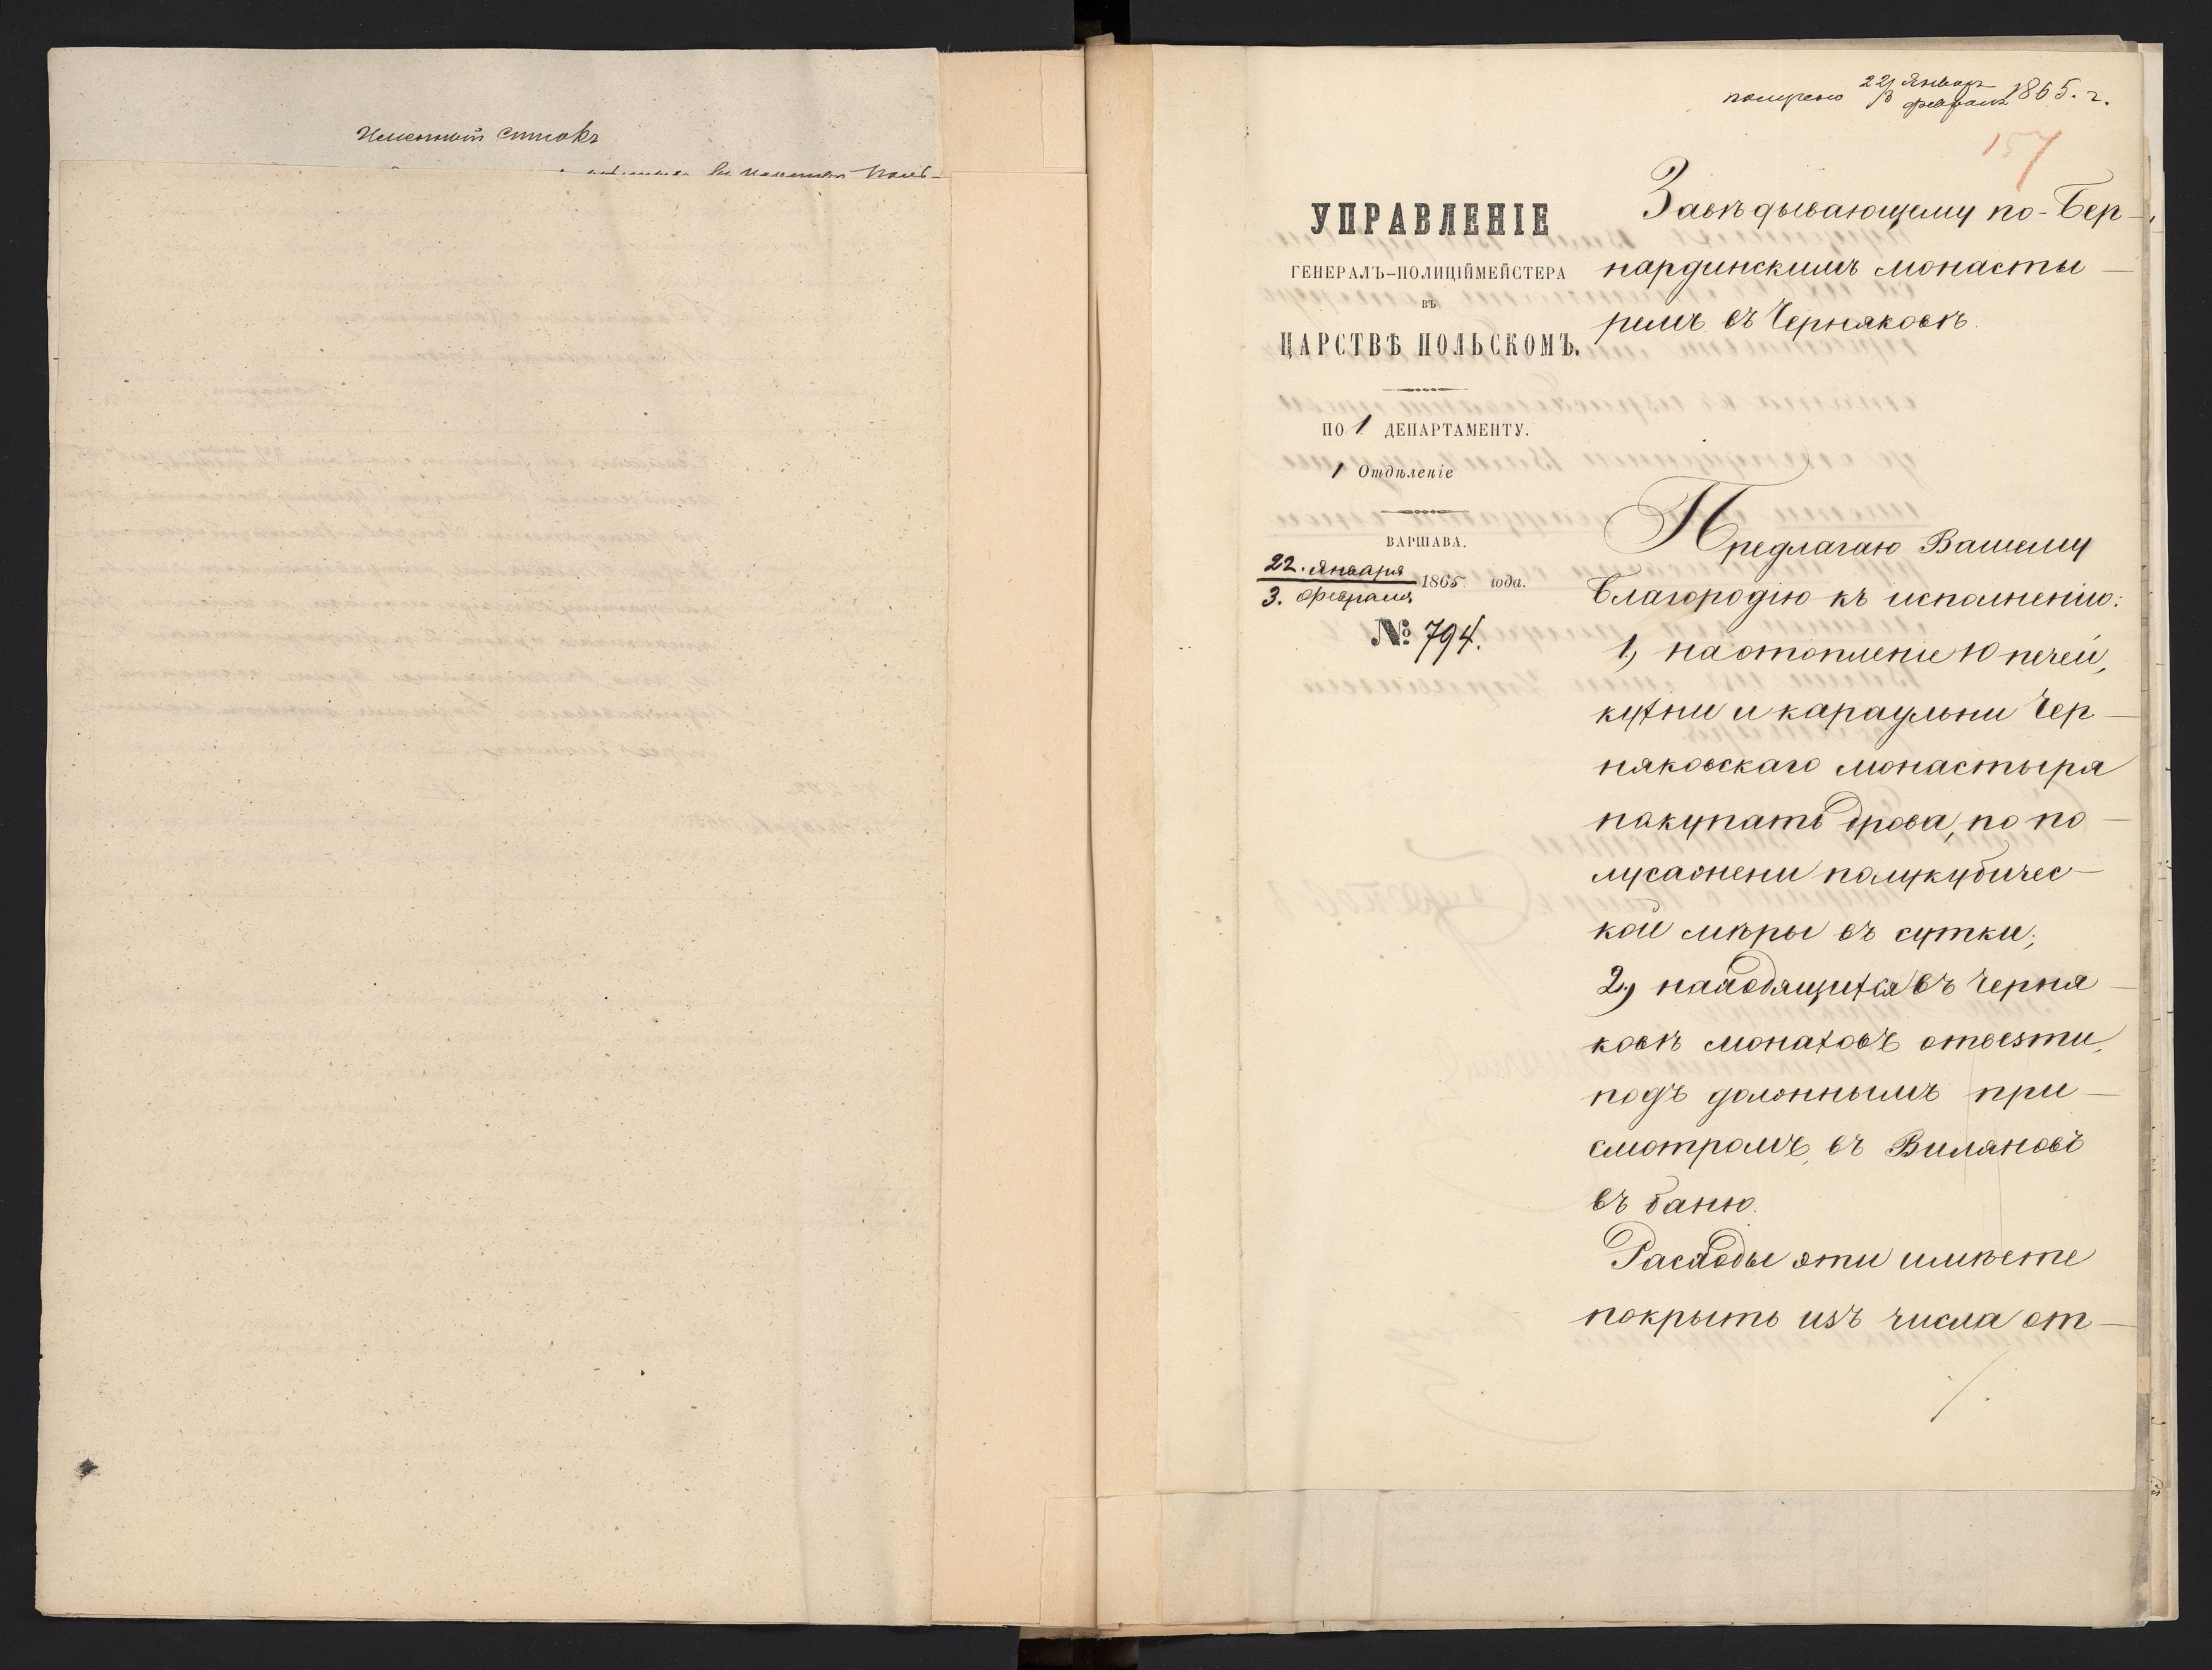 Именный списокъ
получено 22/3 Январ. Феврал. 1865. г.
157
УПРАВЛЕНІЕ
ГЕНЕРАЛЪ-ПОЛИЦІЙМЕЙСТЕРА
ВЪ
ЦАРСТВѢ ПОЛЬСКОМЪ.
ПО 1 ДЕПАРТАМЕНТУ.
1 Отдѣленіе
ВАРШАВА.
22. Января
3. Февраля 1865 года.
№ 794.
Завѣдывающему по-Бер-
нардинскимъ монасты-
ремъ въ Черняковѣ.
Предлагаю Вашему
Благородію къ исполненію:
1, на отопленіе 10 печей,
кухни и караульни Чер-
няковскаго монастыря
покупать дрова, по по-
лусажени полукубичес-
кой мѣры въ сутки;
2, находящихся въ Черня-
ковѣ монаховъ отвезти,
подъ должнымъ при-
смотромъ, въ Вилановъ
въ баню.
Расходы эти имѣете
покрыть изъ числа от-